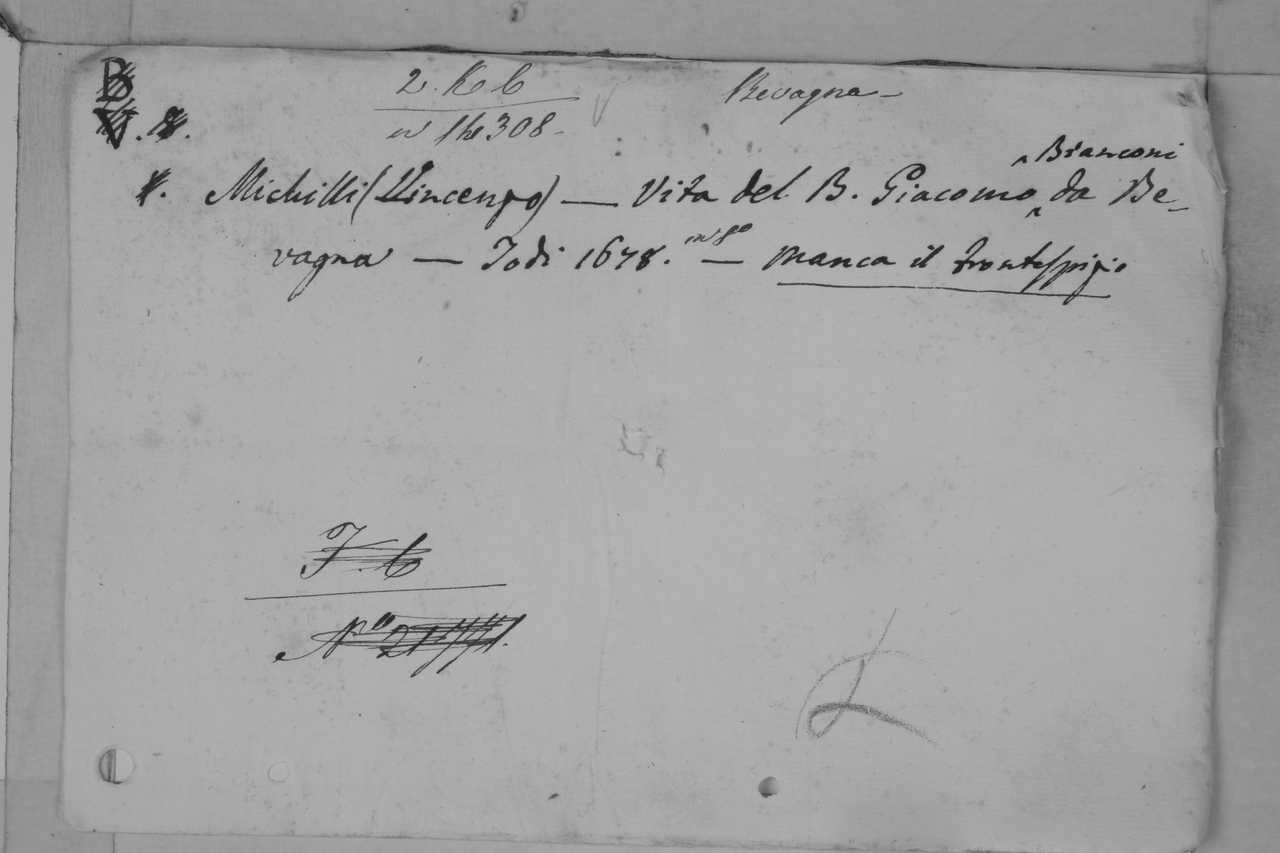 Bevagna -
Michilli (Vincenzo) — Vita del B. Giacomo Bianconi da Be-
vagna — Todi 1678. in 8º — manca il frontespizio